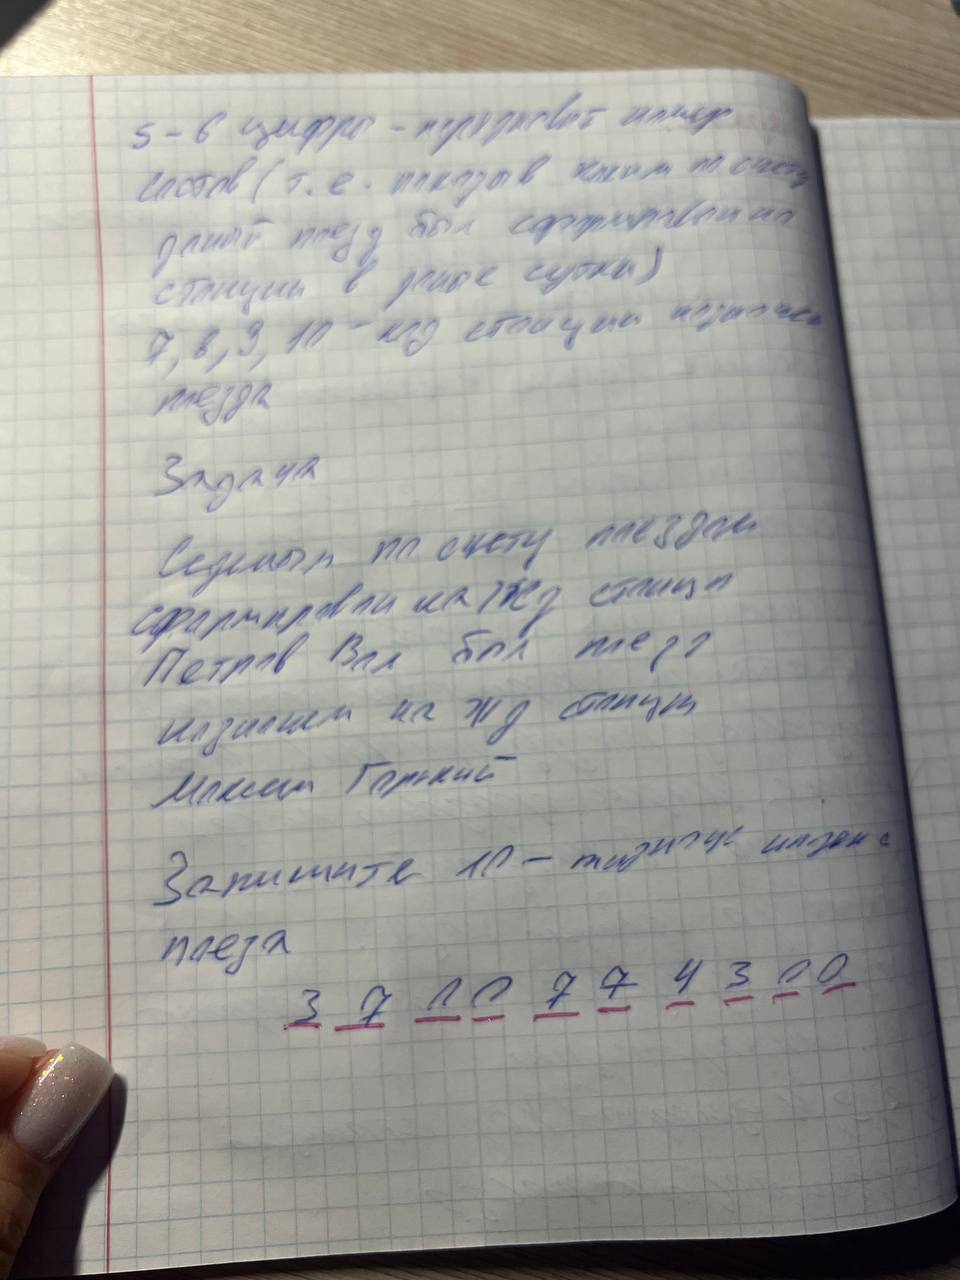 5-6 цифры - порядковый номер
состав (т.е. показыв каким по счету
даный поезд был сформирован на
станции в даные сутки)
7, 8, 9, 10 - код станции назначен
поезда
Задача
Седьмым по счету поездом
сформировали на жд станци
Петров Вал был поезд
назначем на жд станцию
Максим Горький
Запишите 10 - индекс
поезда
3 7 0 0 7 7 4 3 0 0